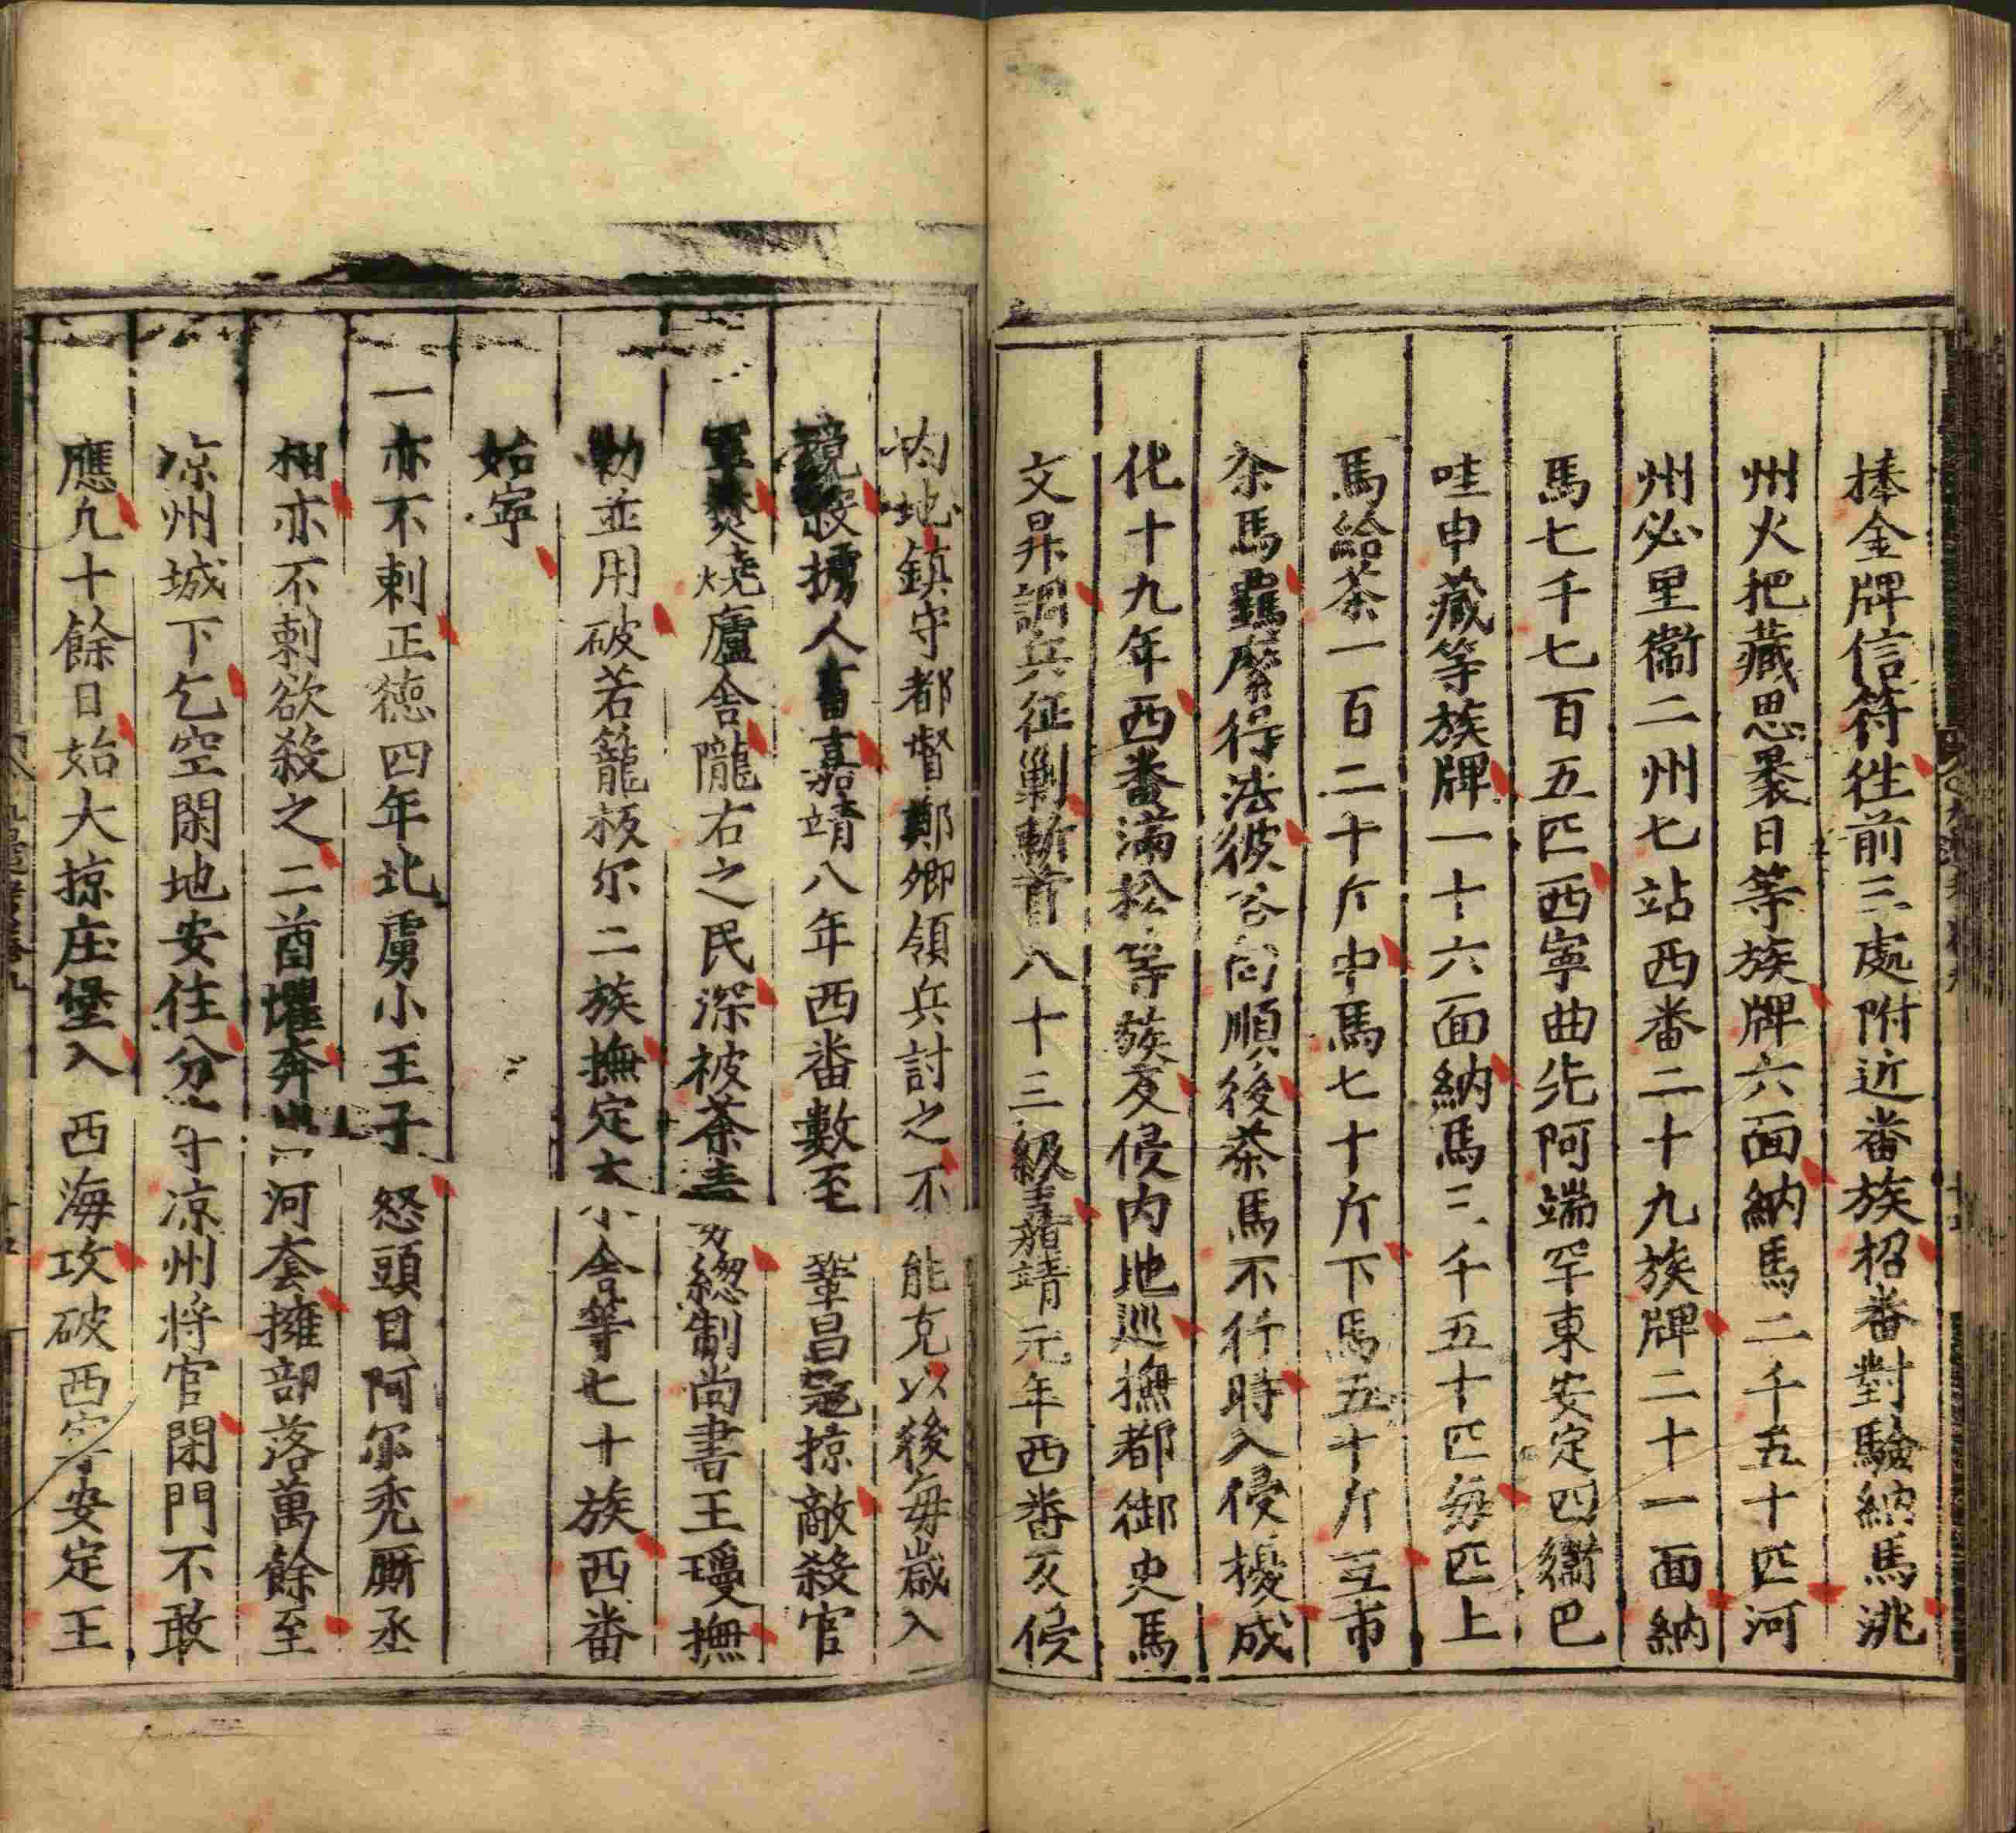 捧金牌信符徃前三處附近畨族招畨對驗納馬洮
州火把藏思曩日等族牌六面納馬二千五十匹河
州必里衞二州七站西番二十九族牌二十一面納
馬七千七百五匹西寧曲先阿端罕東安定四衞巴
哇申藏等族牌一十六面納馬三千五十匹每匹上
馬給茶一百二十斤中馬七十斤下馬五十斤互市
茶馬羈縻行法彼各向順後茶馬不行時入侵擾成
化十九年西畨滿松等簇反侵内地巡撫都御史馬
文昇調兵征剿斬首八十三級嘉靖元年西畨反侵
内地鎮守都督鄭卿領兵討之不能克以後每歳入
殺擄人畜嘉靖八年西番數至鞏昌冦掠敵殺官
軍焚燒廬舍隴右之民深被荼毒總制尚書王瓊撫
勦並用破若籠板尔二族撫定大小舍等七十族西番
始寧
一亦不剌正德四年北虜小王子怒頭目阿尔秃厮丞
相亦不剌欲殺之二酋懼奔出河套擁部落萬餘至
凉州城下乞空閑地安住分守凉州將官閉門不敢
應九十餘日始大掠庄堡入西海攻破西寧安定王